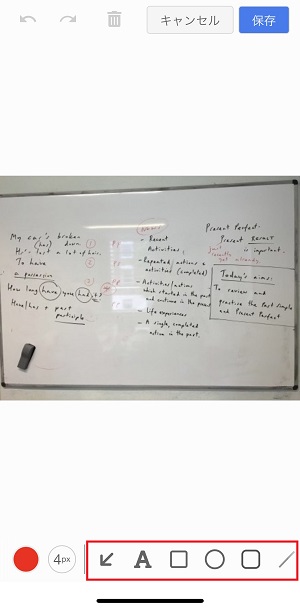 キャンセル
保存
My car's broken
(has) down.
He's lost a lot of hair.
To have
a possession
How long have you had it?
Have/has + past
participle
- Recent
Activities
- Repeated, actions +
activities (completed)
- Activities/actions
which started in the past
and continue in the present
- Life experiences
- A single, completed
action in the past.
Present Perfect.
Present RESULT
is important.
just
recently
yet already
Today's aims:
To review and
practise the Past Simple
and Present Perfect
4px
A